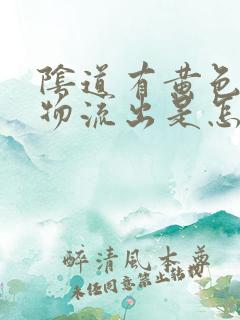 陰道有黄色
物流出是怎
醉清風本尊
未经同意禁止转载